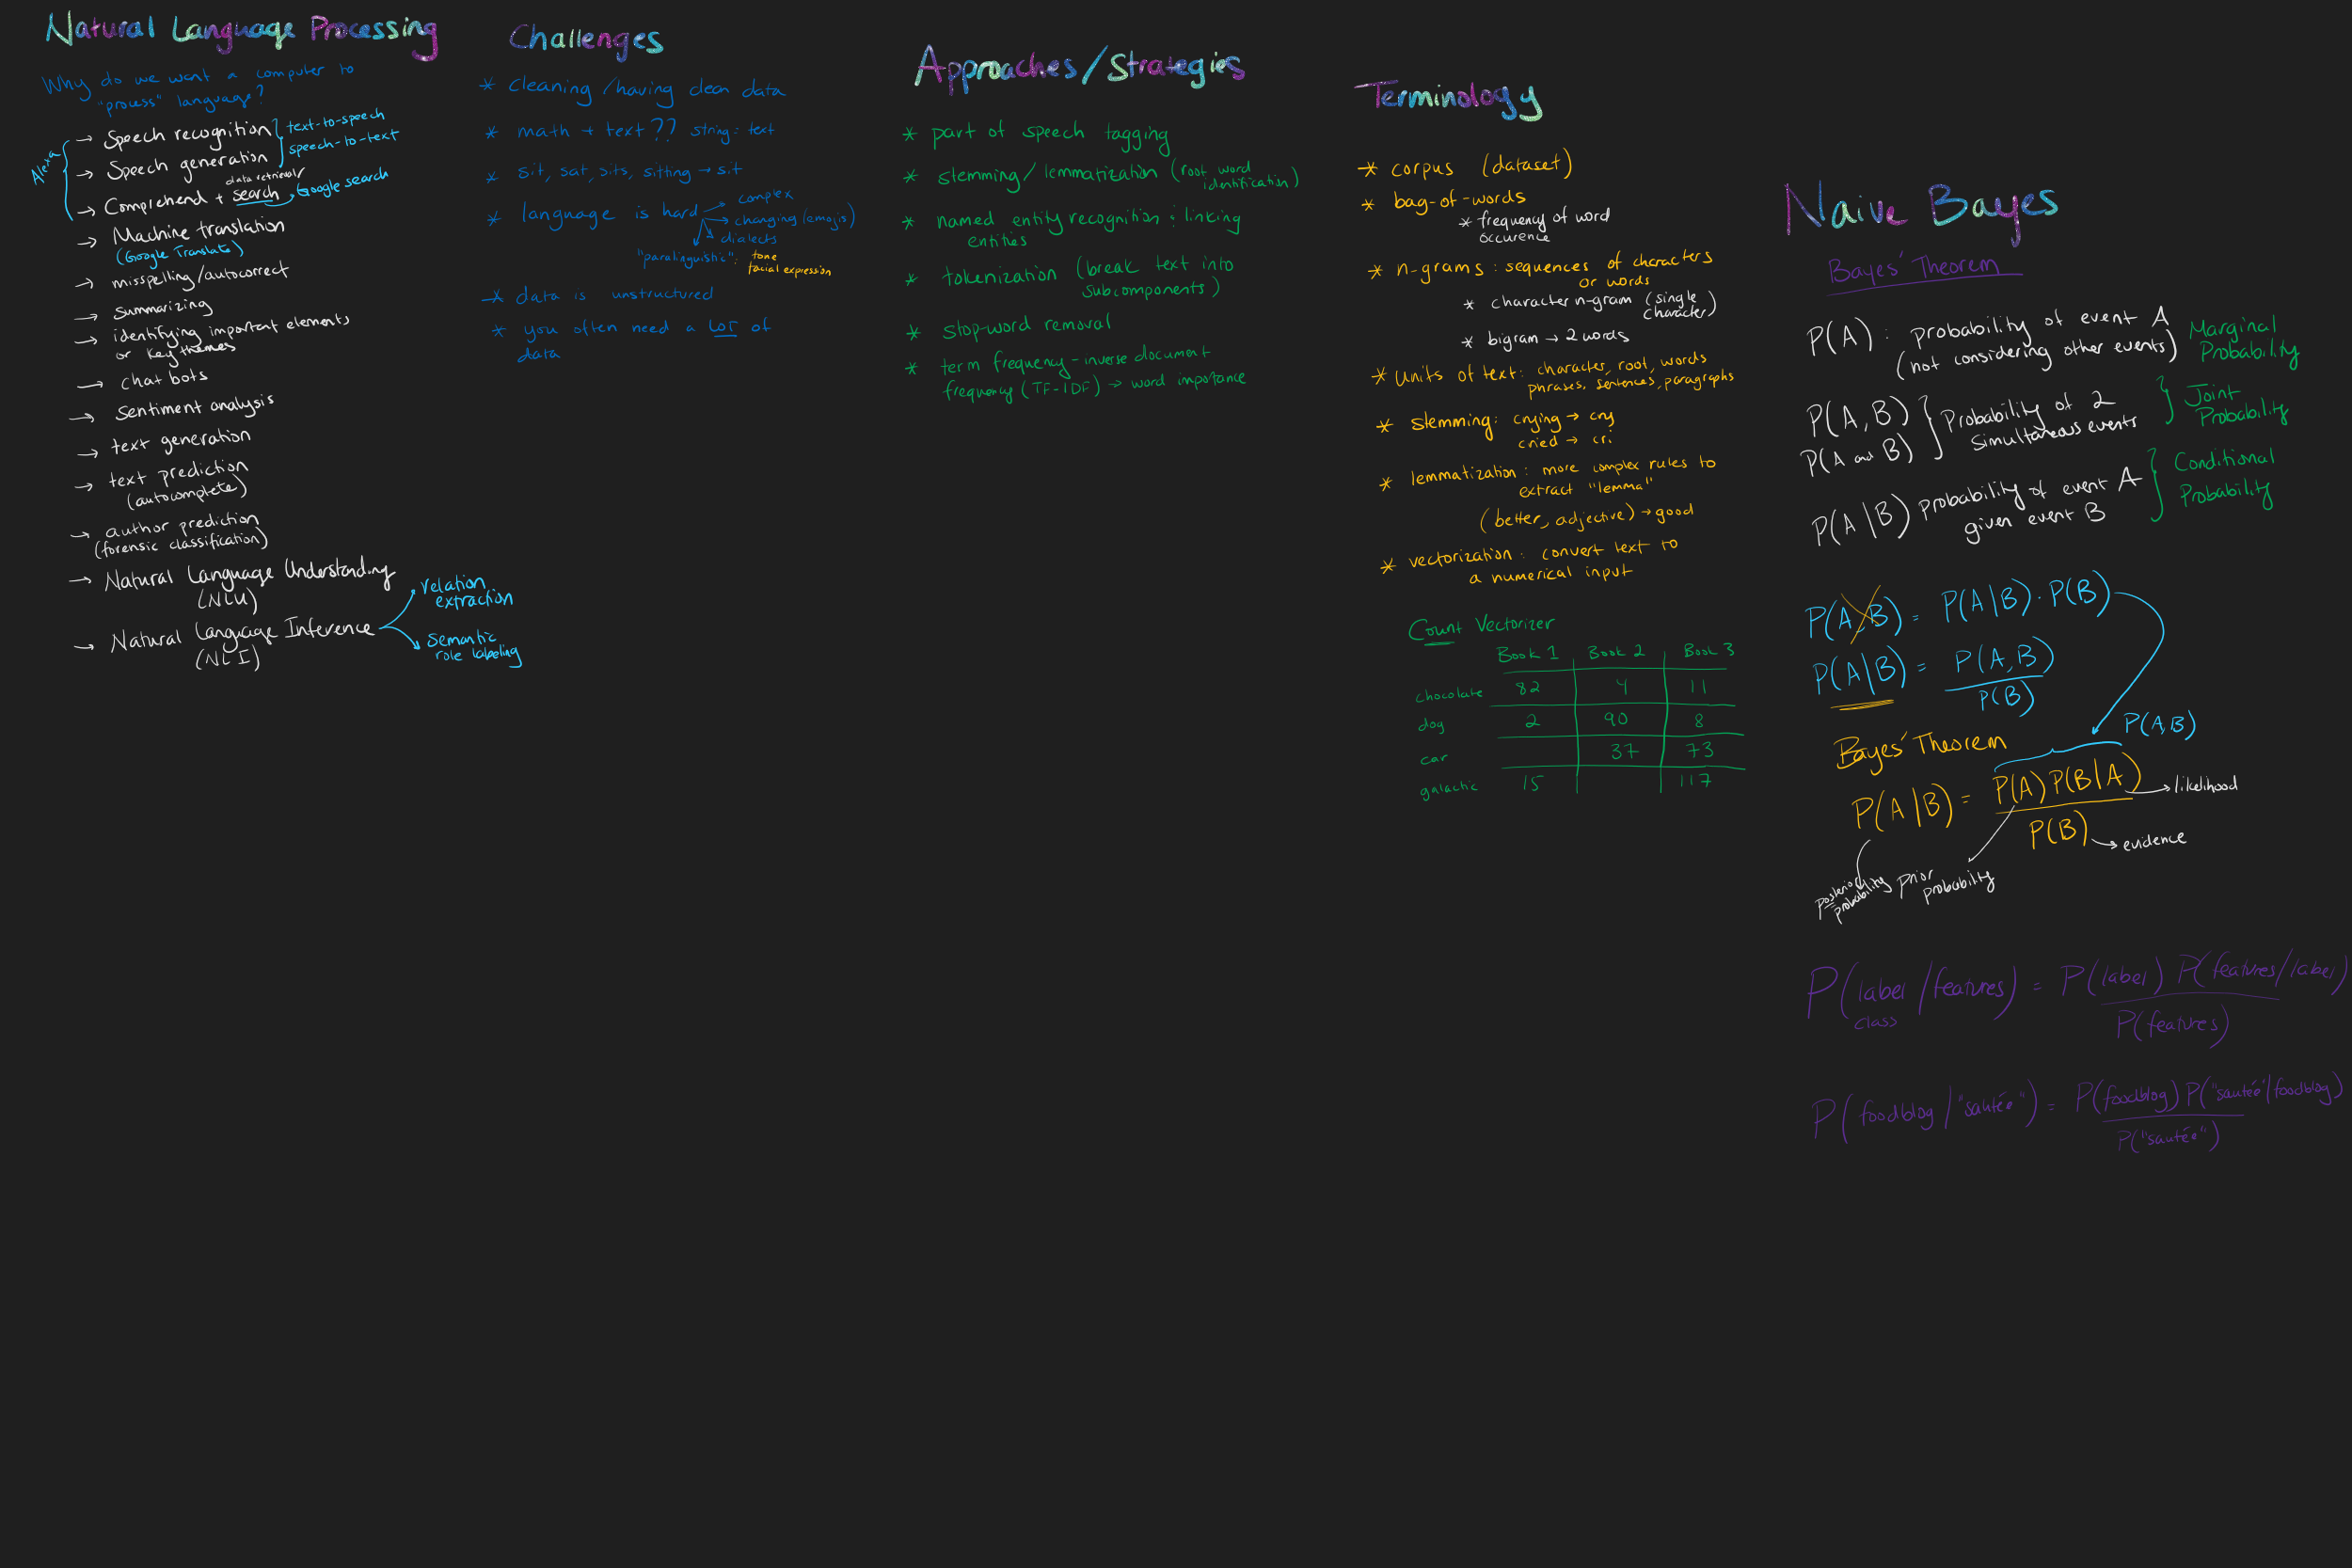 Natural Language Processing
Why do we want a computer to
"process" language?
Alexa
→ Speech recognition
→ Speech generation
text-to-speech
speech-to-text
data retrieval/
→ Comprehend + search → Google search
→ Machine translation
(Google Translate)
→ misspelling/autocorrect
→ summarizing
→ identifying important elements
or key themes
→ chat bots
→ sentiment analysis
→ text generation
→ text prediction
(autocomplete)
→ author prediction
(forensic classification)
→ Natural Language Understanding
(NLU)
→ Natural Language Inference
(NLI)
relation
extraction
semantic
role labeling
Challenges
* cleaning /having clean data
* math + text?? string: text
* sit, sat, sits, sitting → sit
* language is hard → complex
→ changing (emojis)
→ dialects
"paralinguistic": tone
facial expression
* data is unstructured
* you often need a LOT of
data
Approaches/Strategies
* part of speech tagging
* stemming/lemmatization (root word
identification)
* named entity recognition & linking
entities
* tokenization (break text into
subcomponents)
* stop-word removal
* term frequency-inverse document
frequency (TF-IDF) → word importance
Terminology
* corpus (dataset)
* bag-of-words
* frequency of word
occurence
* n-grams: sequences of characters
or words
* character n-gram (single
character)
* bigram → 2 words
* units of text: character, root, words
phrases, sentences, paragraphs
* stemming: crying → cry
cried → cri
* lemmatization: more complex rules to
extract "lemma"
(better, adjective) → good
* vectorization: convert text to
a numerical input
Count Vectorizer
Book 1 Book 2 Book 3
chocolate 82 4 11
dog 2 90 8
car 37 73
galactic 15 117
Naive Bayes
Bayes' Theorem
P(A): probability of event A
(not considering other events)
Marginal
Probability
P(A,B)
P(A and B)
Probability of 2
simultaneous events
Joint
Probability
P(A|B) probability of event A
given event B
Conditional
Probability
P(A,B) = P(A|B) · P(B)
P(A|B) = P(A,B)
P(B)
P(A,B)
Bayes' Theorem
P(A|B) = P(A) P(B|A)
P(B)
→ likelihood
→ evidence
posterior
probability
prior
probability
P(label/features) = P(label) P(features/label)
class
P(features)
P(foodblog/"sautée") = P(foodblog) P("sautée"|foodblog)
P("sautée")